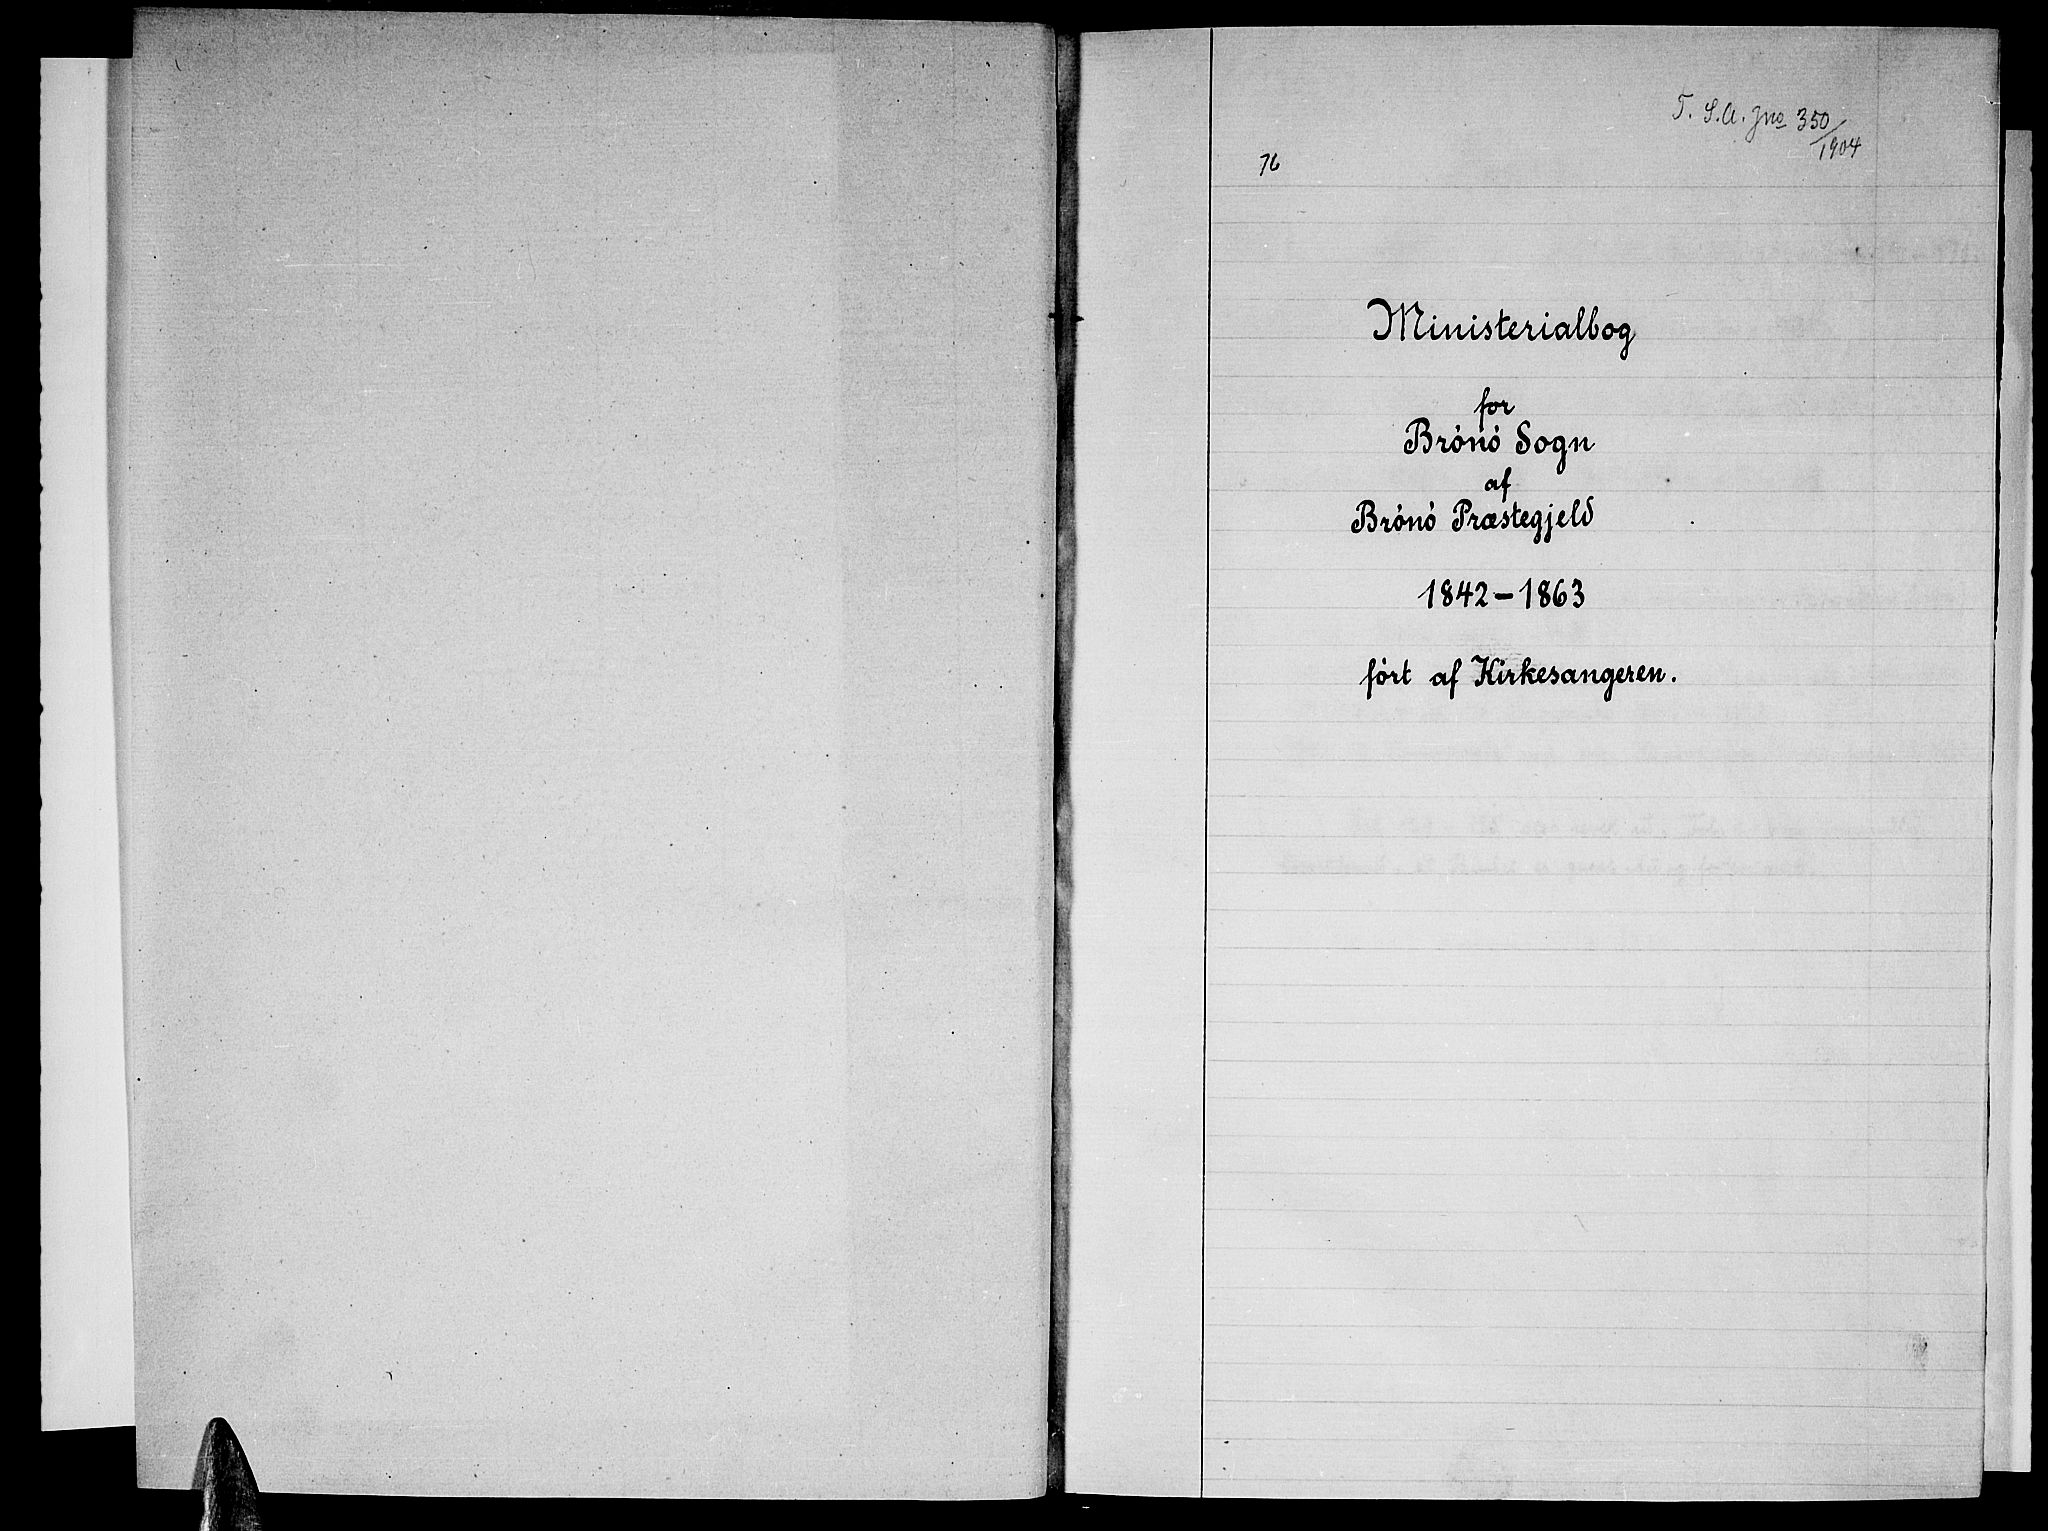 T. S.A. Jno 350/1904
76
Ministerialbog
for
Brónó Sogn
af
Brónó Præstegjeld
1842-1863
fórt af Kirkesangeren.